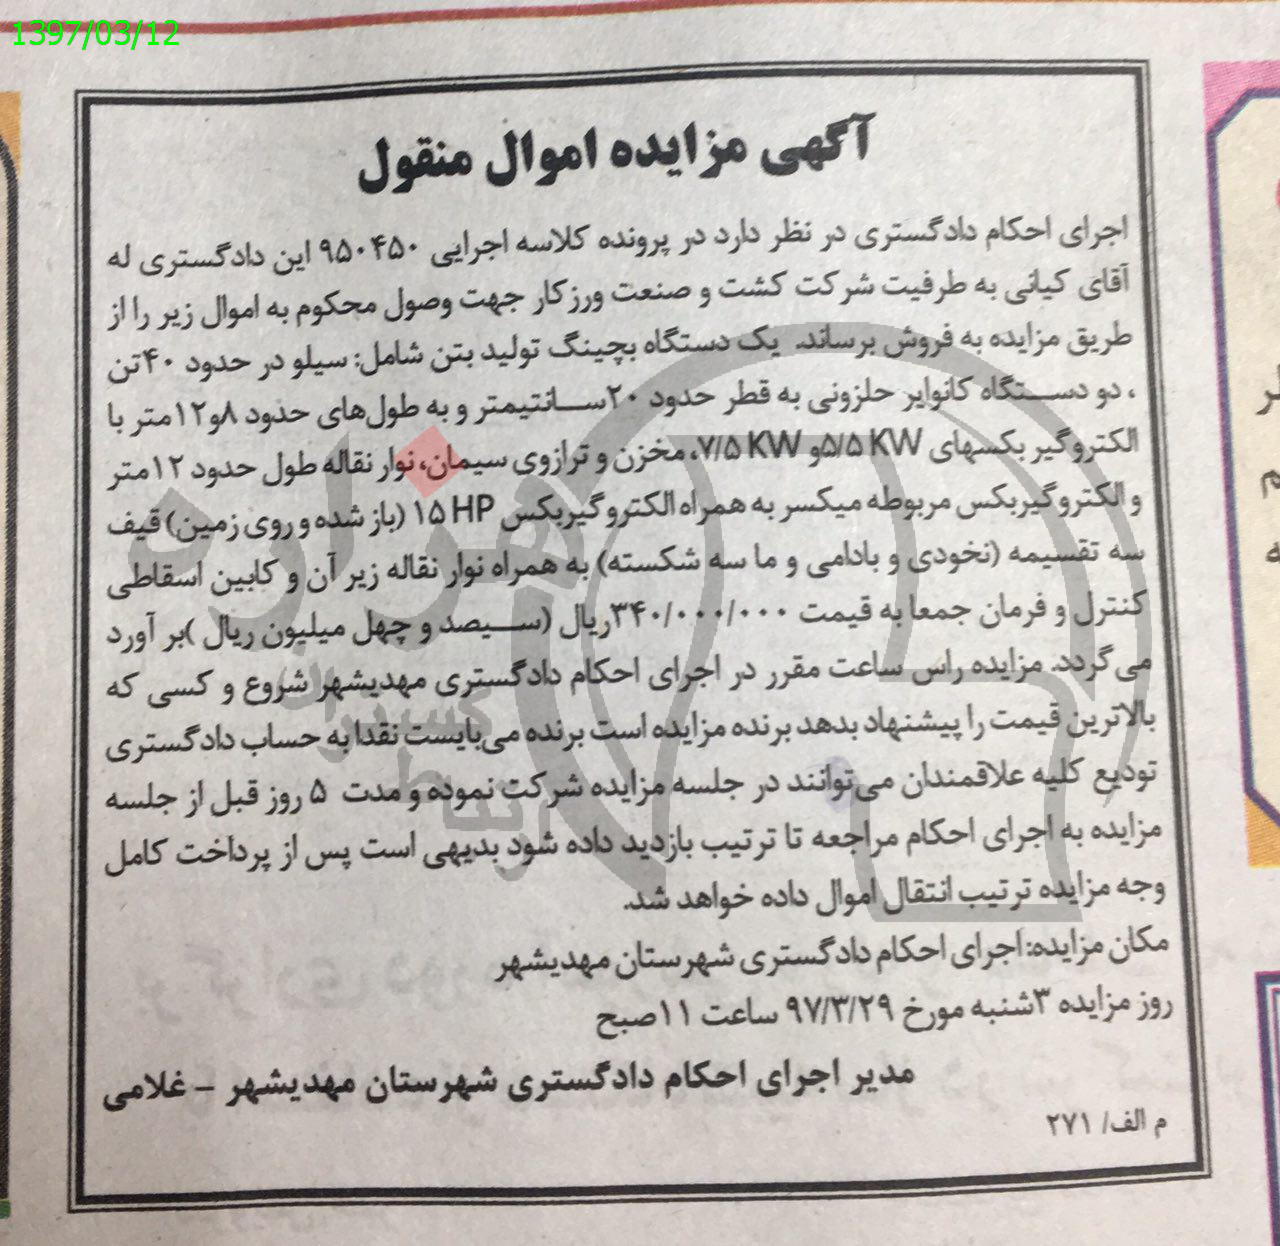 1397/03/12
آگهی مزایده اموال منقول
اجرای احکام دادگستری در نظر دارد در پرونده کلاسه اجرایی ۹۵۰۴۵۰ این دادگستری له
آقای کیانی به طرفیت شرکت کشت و صنعت ورزکار جهت وصول محکوم به اموال زیر را از
طریق مزایده به فروش برساند. یک دستگاه بچینگ تولید بتن شامل: سیلو در حدود ۴۰تن
، دو دستگاه کانوایر حلزونی به قطر حدود ۲۰سانتیمتر و به طول‌های حدود ۸و۱۲متر با
الکتروگیر بکسهای ۵/۵ KWو ۷/۵ KW، مخزن و ترازوی سیمان، نوار نقاله طول حدود ۱۲متر
و الکتروگیربکس مربوطه میکسر به همراه الکتروگیربکس ۱۵ HP (باز شده و روی زمین) قیف
سه تقسیمه (نخودی و بادامی و ما سه شکسته) به همراه نوار نقاله زیر آن و کابین اسقاطی
کنترل و فرمان جمعا به قیمت ۳۴۰/۰۰۰/۰۰۰ریال (سیصد و چهل میلیون ریال )بر آورد
می‌گردد. مزایده راس ساعت مقرر در اجرای احکام دادگستری مهدیشهر شروع و کسی که
بالاترین قیمت را پیشنهاد بدهد برنده مزایده است برنده می‌بایست نقدا به حساب دادگستری
تودیع کلیه علاقمندان می‌توانند در جلسه مزایده شرکت نموده و مدت ۵ روز قبل از جلسه
مزایده به اجرای احکام مراجعه تا ترتیب بازدید داده شود بدیهی است پس از پرداخت کامل
وجه مزایده ترتیب انتقال اموال داده خواهد شد.
مکان مزایده: اجرای احکام دادگستری شهرستان مهدیشهر
روز مزایده ۳شنبه مورخ ۹۷/۳/۲۹ ساعت ۱۱صبح
مدیر اجرای احکام دادگستری شهرستان مهدیشهر – غلامی
م الف/ ۲۷۱